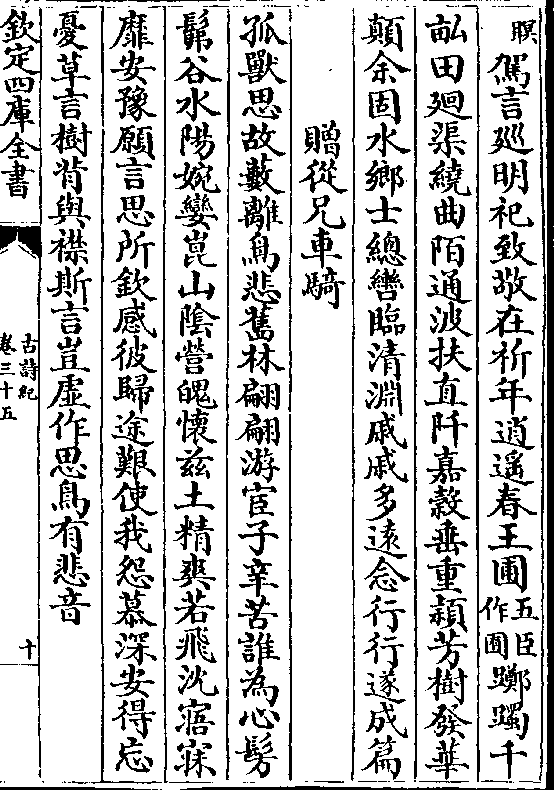 暝駕言巡明祀致敬在祈年逍遥春王圃五臣作囿躑躅千
畝田廻渠繞曲陌通波扶直阡嘉穀垂重穎芳樹發華
顛余固水鄉士總轡臨清淵戚戚多遠念行行遂成篇
贈從兄車騎
孤獸思故藪離鳥悲舊林翩翩游宦子辛苦誰為心髣
髴谷水陽婉孌崑山陰營魄懷兹土精爽若飛沈寤寐
靡安豫願言思所欽感彼歸途艱使我怨慕深安得忘
憂草言樹背與襟斯言豈虚作思鳥有悲音
欽定四庫全書
古詩紀
卷三十五
十